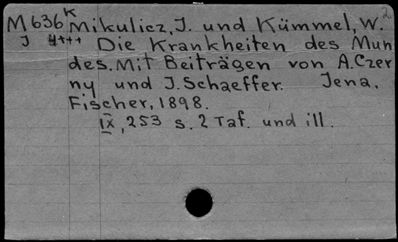 2
M 636 K Mikulicz, J. und Kümmel, W.
J 4+++ Die Krankheiten des Mun
des. Mit Beiträgen von A. Czer
ny und J. Schaeffer. Jena,
Fischer, 1898.
IX, 253 s. 2 Taf. und ill.